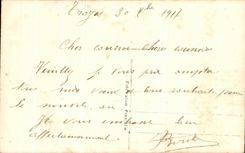 Troyes 30 Xbre 1917
Cher cousin - Chère cousine
Veuillez je vous prie accepter
mes vœux et bons souhaits pour
le nouvel an
Je vous embrasse bien
affectueusement